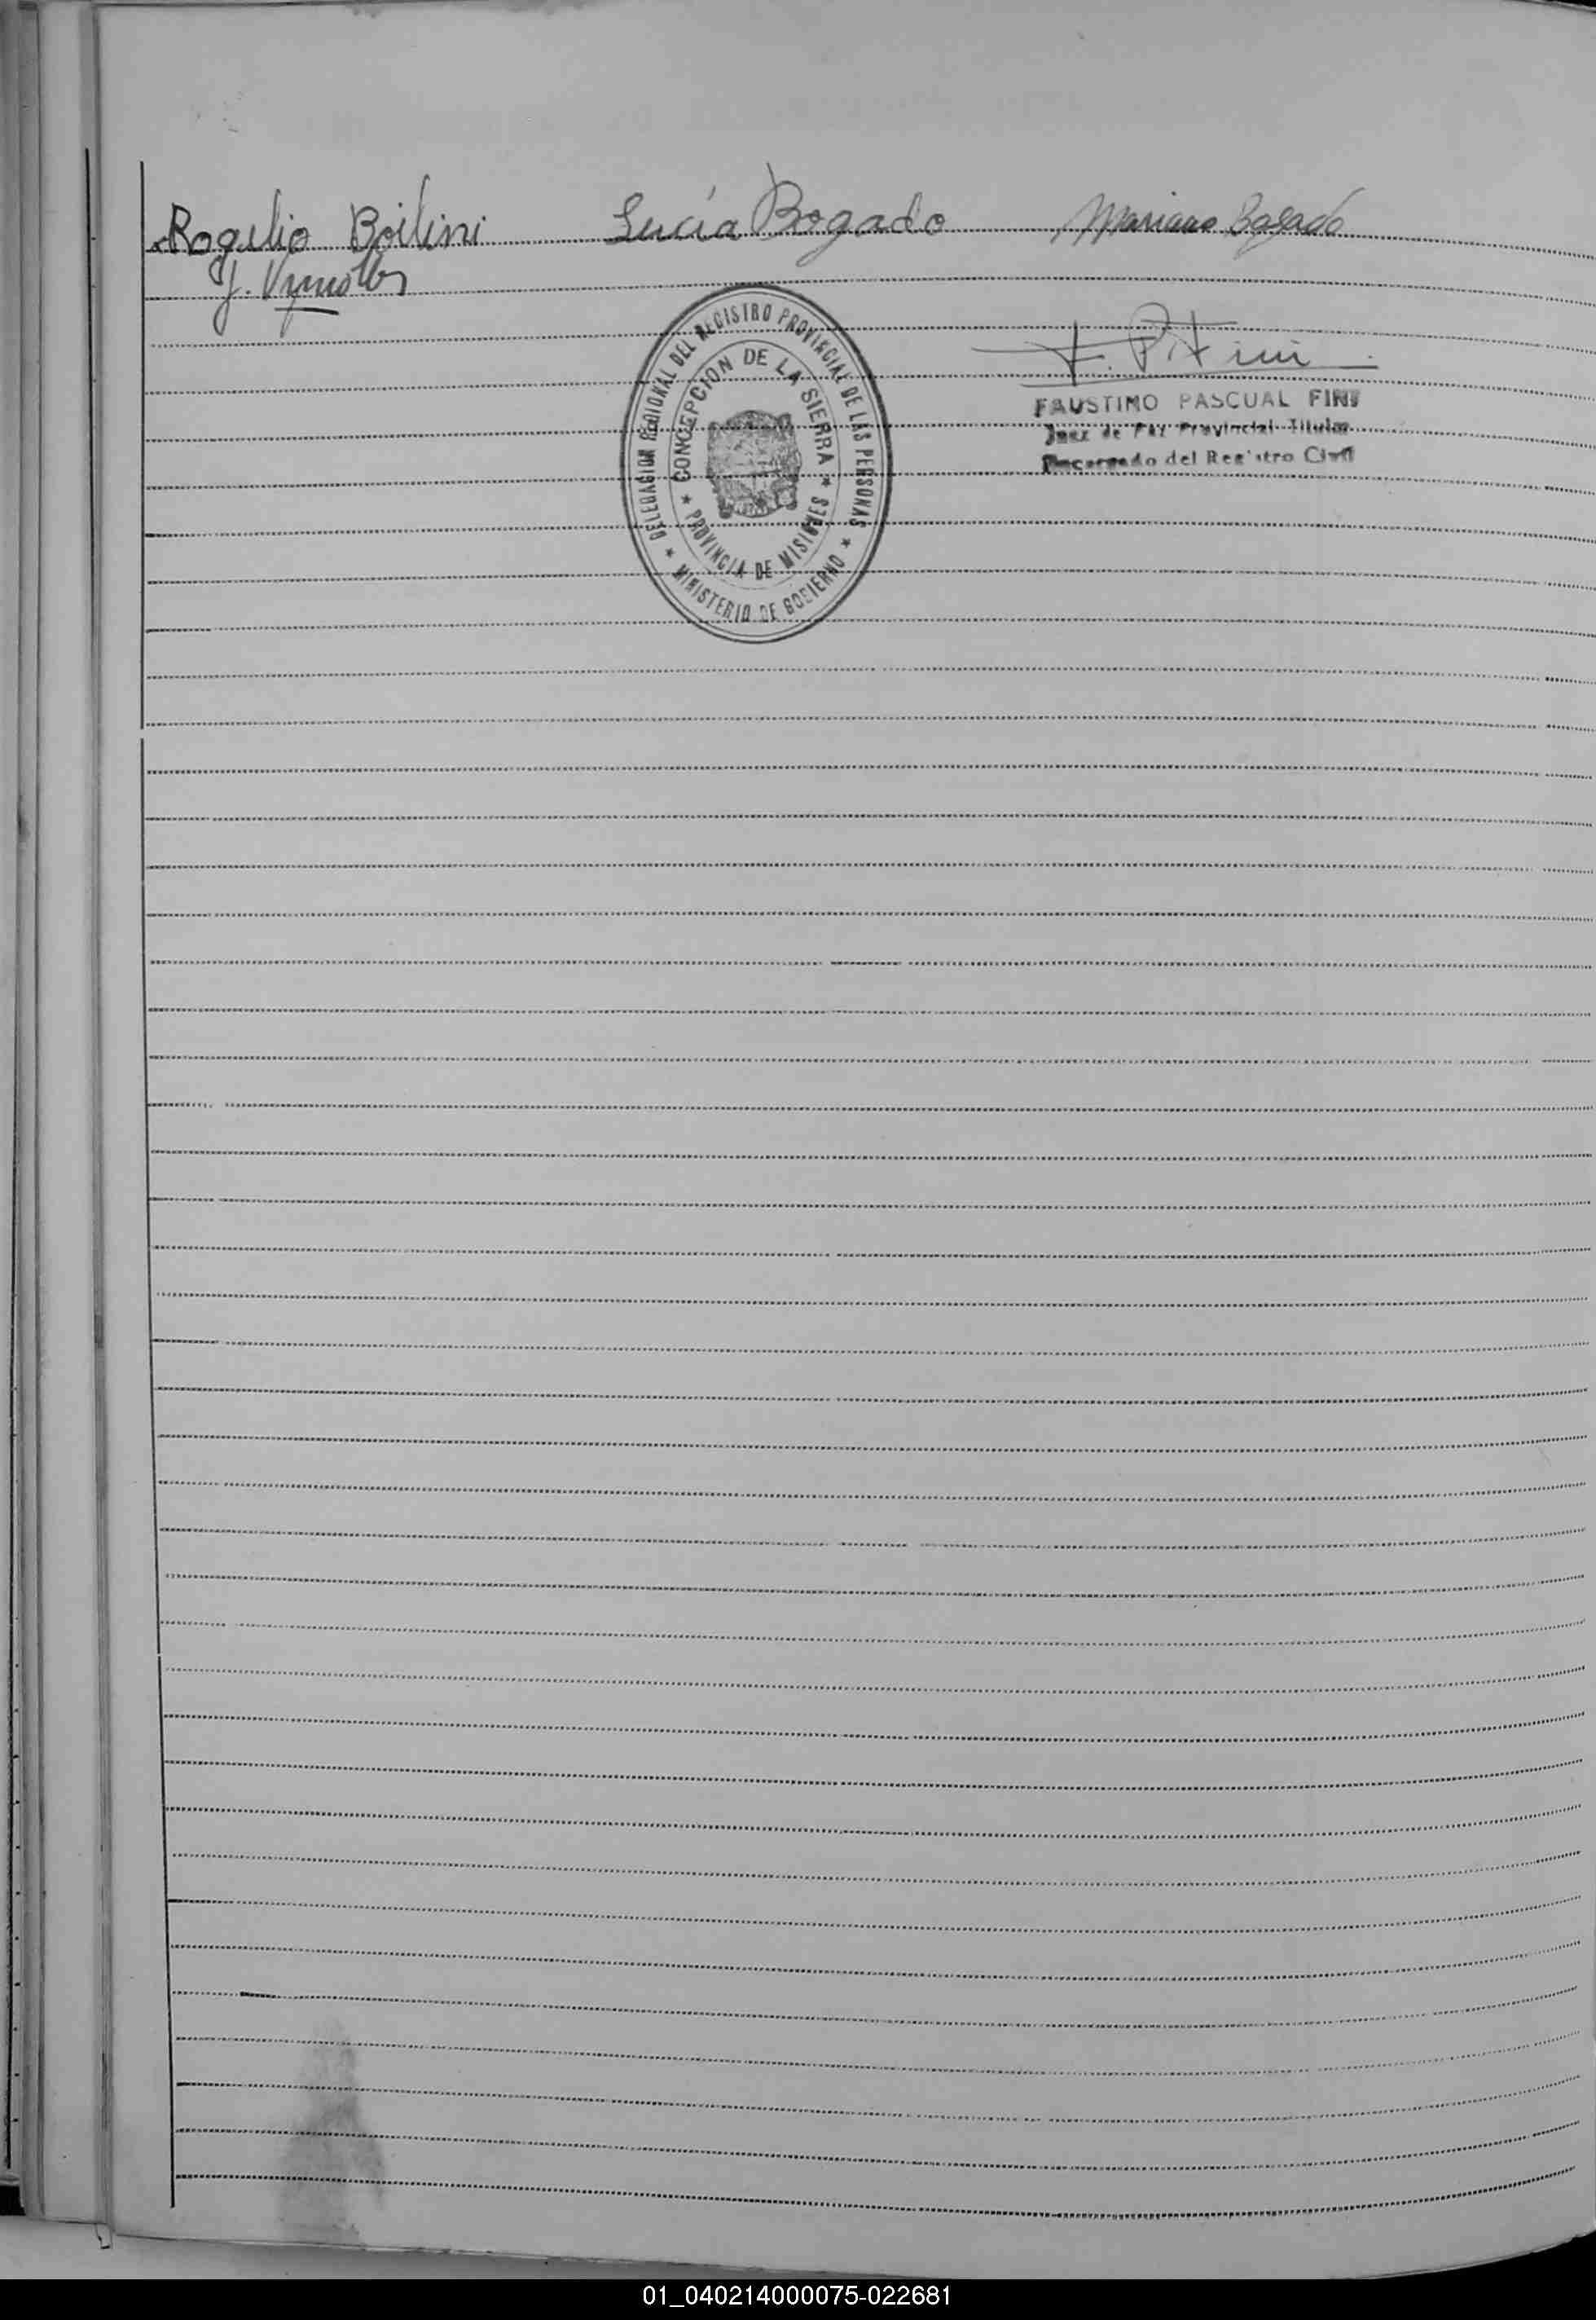 Rogelio Boilini Lucía Bogado Mariano Bogado
DELEGACION REGIONAL DEL REGISTRO PROVINCIAL DE LAS PERSONAS
★ MINISTERIO DE GOBIERNO ★
CONCEPCION DE LA SIERRA
★ PROVINCIA DE MISIONES ★
F. P. Fini
FAUSTINO PASCUAL FINI
Juez de Paz Provincial Titular
Encargado del Registro Civil
01_040214000075-022681